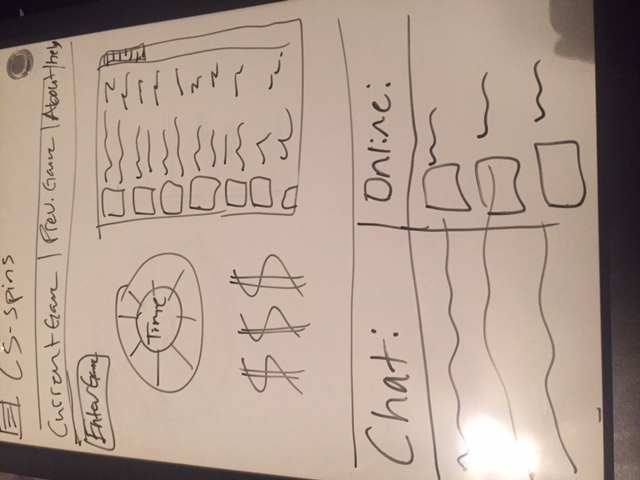 CS-spins
Current Game | Prev. Game | About/help
Enter Game
Time
$ $ $
Chat:
Online: